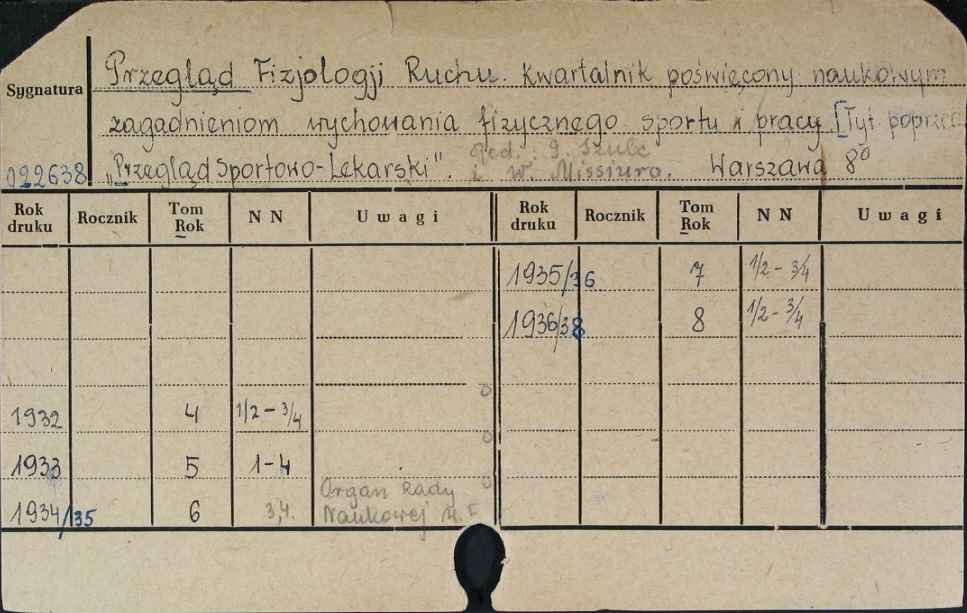 Przegląd Fizjologji Ruchu. Kwartalnik poświęcony naukowym
Sygnatura
zagadnieniom wychowania fizycznego sportu i pracy [Tyt. poprzed.
022638 „Przegląd Sportowo-Lekarski". Warszawa 8°
red.: G. Szulc
i W. Missiuro.
Rok druku Rocznik Tom Rok N N Uwagi Rok druku Rocznik Tom Rok N N Uwagi
1935/36 7 1/2 - 3/4
1936/38 8 1/2 - 3/4
1932 4 1/2 - 3/4
1933 5 1-4
Organ Rady
1934/35 6 3,4. Naukowej